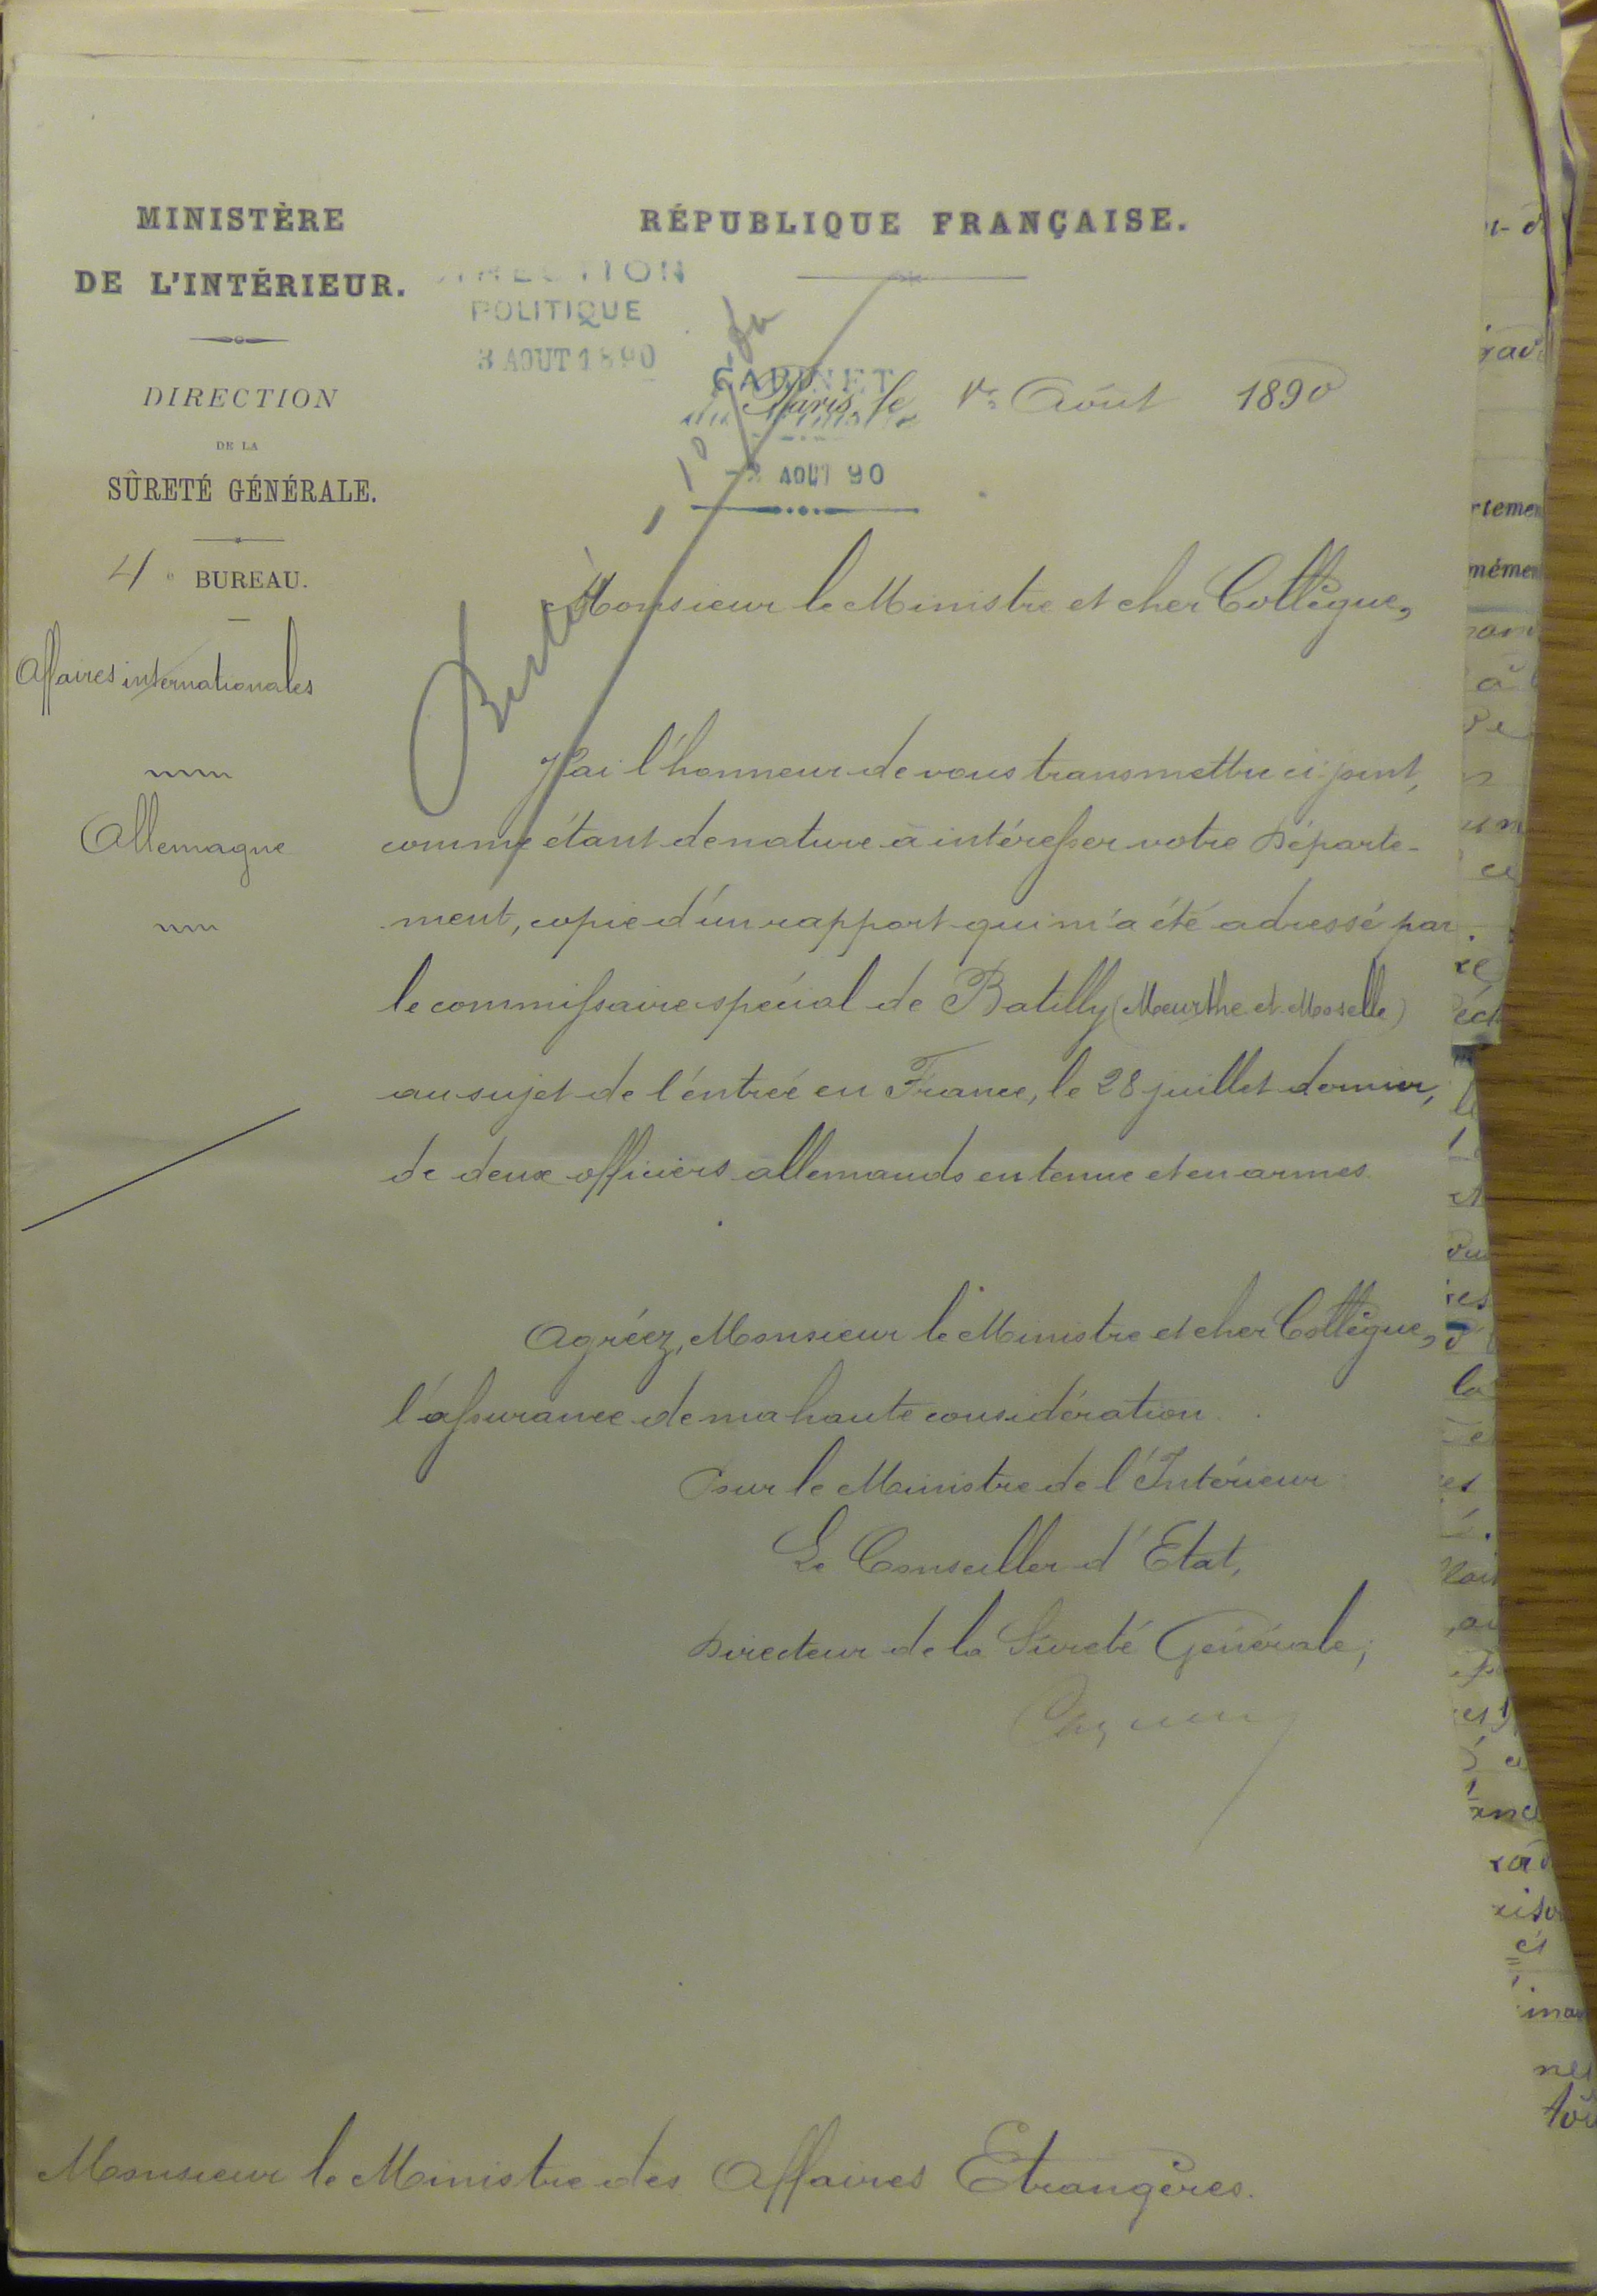 MINISTÈRE
DE L'INTÉRIEUR.
DIRECTION
DE LA
SÛRETÉ GÉNÉRALE.
4e BUREAU.
Affaires internationales
Allemagne
RÉPUBLIQUE FRANÇAISE.
DIRECTION
POLITIQUE
3 AOUT 1890
CABINET
du Ministre
-2 AOUT 90
Paris, le 1er Août 1890
Monsieur le Ministre et cher Collègue,
J'ai l'honneur de vous transmettre ci-joint,
comme étant de nature à intéresser votre Départe-
ment, copie d'un rapport qui m'a été adressé par
le commissaire spécial de Batilly (Meurthe et Moselle)
au sujet de l'entrée en France, le 28 juillet dernier,
de deux officiers allemands en tenue et en armes.
Agréez, Monsieur le Ministre et cher Collègue,
l'assurance de ma haute considération.
Pour le Ministre de l'Intérieur
Le Conseiller d'Etat,
Directeur de la Sûreté Générale,
Monsieur le Ministre des Affaires Etrangères.